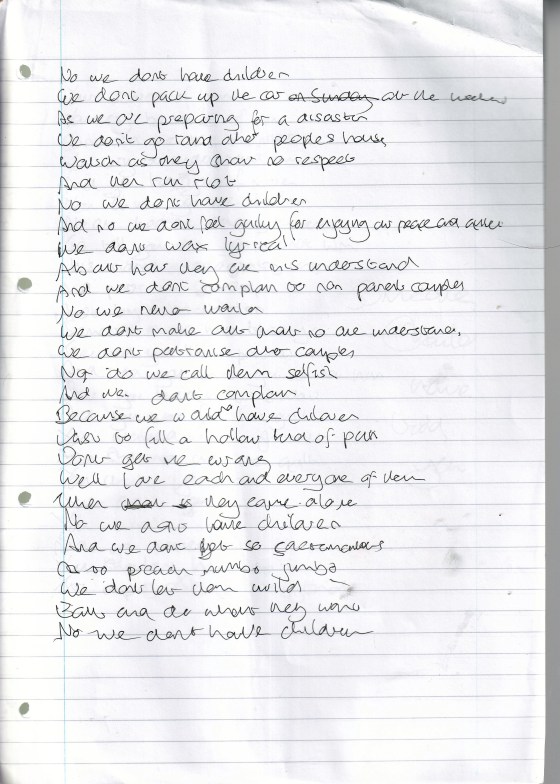 No we dont have children
We dont pack up the car on Sunday at the
As we are preparing for a disaster
We don't go round other peoples house
Watch as they show no respect
And then run riot
No we dont have children
And no we dont feel guilty for enjoying our peace and quiet
We dont wax lyrical
About how they are mis understand
And we dont complain to non parent couples
No we never would
We dont make out that no one understands,
We dont patronise other couples
Nor do we call them selfish
And we dont complain
Because we would have children
Just to fill a hollow kind of
Dont get me wrong
We'll love each and everyone of them
When they came alone
No we dont have children
And we dont get so
As to preach mumbo jumbo
We dont let them
and do what they want
No we dont have children